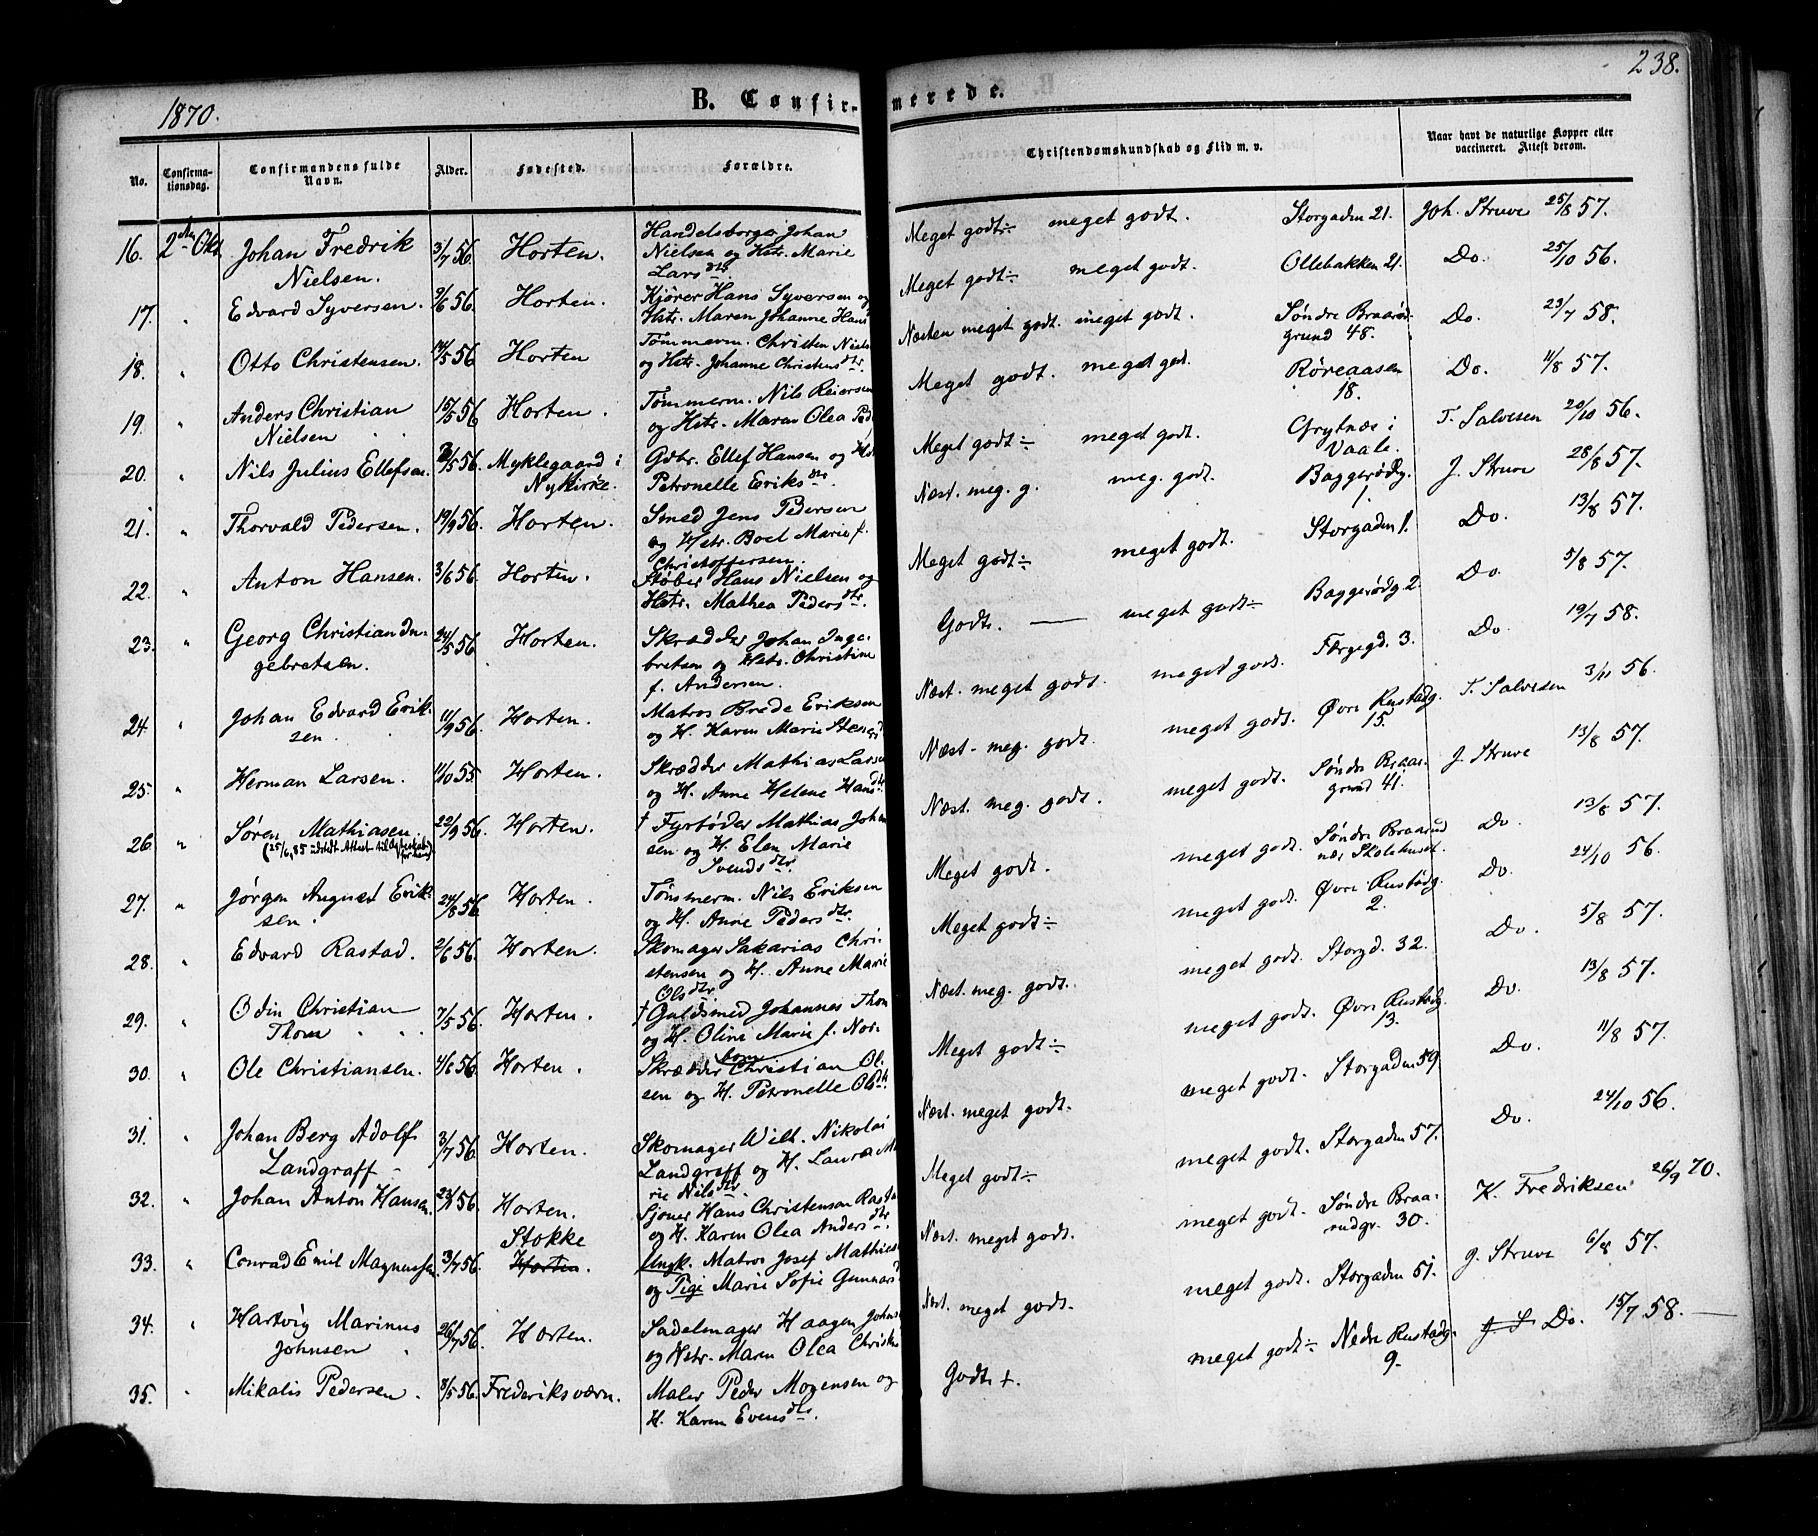 1870.
B. Confirmerede.
238.
No.
Confirmationsdag.
Confirmandens fulde Navn.
Alder.
Fødested.
Forældre.
Christendomskundskab og Flid m. v.
Naar havt de naturlige Kopper eller
vaccineret. Attest derom.
16. 2den Okt. Johan Fredrik 3/7 56. Horten. Handelsborger Johan
Nielsen. Nielsen og Hstr. Marie
Larsdtr.
Meget godt÷ meget godt. Storgaden 21. Joh. Struve 25/8 57.
17. " Edvard Syversen. 2/6 56. Horten. Kjører Hans Syversen og
Hstr. Maren Johanne Hans
Meget godt÷ meget godt. Ollebakken 21. Do. 25/10 56.
18. " Otto Christensen. 14/5 56 Horten Tømmerm. Christen Niels
og Hstr. Johanne Christensdtr.
Næsten meget godt. meget godt. Søndre Braarød-
grund 48. Do. 23/7 58.
19. " Anders Christian 15/5 56 Horten. Tømmerm. Nils Reiersen
Nielsen og Hstr. Maren Olea Ped
Meget godt. meget godt. Røreaasen
18. Do. 11/8 57.
20. " Nils Julius Ellefsen. /5 56. Myklegaard i Gdbr. Ellef Hansen og Hst
Nykirke. Petronelle Eriksdtr.
Meget godt÷ meget godt. Grytnæs i
Vaale. T. Salvesen 20/10 56.
21. " Thorvald Pedersen. 19/9 56. Horten. Smed Jens Pedersen
og Hstr. Boel Marie f.
Christoffersen.
Næst. meg. g. meg. godt. Baggerødg.
1. J. Struve 28/8 57.
22. " Anton Hansen. 3/6 56. Horten. Støber Hans Nielsen og
Hstr. Mathea Pedersdtr.
Meget godt÷ meget godt. Storgaden 1. Do. 13/8 57.
23. " Georg Christian In- 24/5 56 Horten. Skrædder Johan Inge-
gebretsen. bretsen og Hstr. Christine
f. Andersen.
Godt. — meget godt÷ Baggerødg. 2. Do. 5/8 57.
24. " Johan Edvard Erik- 11/9 56. Horten. Matros Brede Eriksen
sen. og H. Karen Marie Stens
Næst. meget godt. meget godt. Færgegd. 3. Do. 19/7 58.
25. " Herman Larsen. 11/10 55 Horten. Skrædder Mathias Larsen
og H. Anne Helene Hansdtr
Næst. meg. godt. meget godt. Øvre Rustadg.
15. T. Salvesen 3/11 56.
26. " Søren Mathiasen. 22/9 56. Horten. † Fyrbøder Mathias Johan
(25/6 85 udstedt Attest til
sen og H. Elen Marie
Svendsdtr.
Næst. meg. godt. meget godt. Søndre Braar-
grund 41. J. Struve 13/8 57.
27. " Jørgen August Erik- 24/8 56. Horten. Tømmerm. Nils Eriksen
sen. og H. Anne Pedersdtr.
Meget godt. meget godt. Søndre Braarud
nær Skolehuset. Do. 13/8 57.
28. " Edvard Rastad. 2/6 56. Horten. Skomager Sakarias Chri-
stensen og H. Anne Marie
Olsdtr.
Meget godt÷ meget godt. Øvre Rustadg.
2. Do. 24/10 56.
29. " Odin Christian 7/5 56. Horten. † Guldsmed Johannes Thom
Thom og H. Oline Marie f. Nor-
bom
Næst. meg. godt. meget godt. Storgd. 32. Do. 5/8 57.
30. " Ole Christiansen. 4/6 56. Horten. Skrædder Christian Ol-
sen og H. Petronelle Olsdtr
Meget godt÷ meget godt. Øvre Rustadg.
13. Do. 13/8 57.
31. " Johan Berg Adolf 3/7 56. Horten. Skomager Wilh. Nikolai
Landgraff Landgraff og H. Laura Ma
rie Nilsdtr.
Næst. meget godt. meget godt. Storgaden 59 Do. 11/8 57.
32. " Johan Anton Hansen. 23/ 56 Horten. Sjouer Hans Christensen Rastad
og H. Karen Olea Andersdtr.
Meget godt÷ meget godt. Storgaden 57. Do. 24/10 56.
33. " Conrad Emil Magnussen. 3/7 56. Stokke
Horten. Ungk. Matros Josef Mathies
og Pige Marie Sofie Gunnarsd
Næst. meget godt. meget godt. Søndre Braa-
rudgr. 30. K. Fredriksen 26/9 70.
34. " Hartvig Marinus 26/7 56. Horten. Sadelmager Haagen Johns
Johnsen og Hstr. Maren Olea Christen
Næst. meget godt. meget godt. Storgaden 51. J. Struve 6/8 57.
35. " Mikalis Pedersen. 8/5 56. Frederiksværn. Maler Peder Mogensen og
H. Karen Evensdtr.
Godt +. meget godt÷ Nedre Rustadg.
9. J. S Do. 15/7 58. —